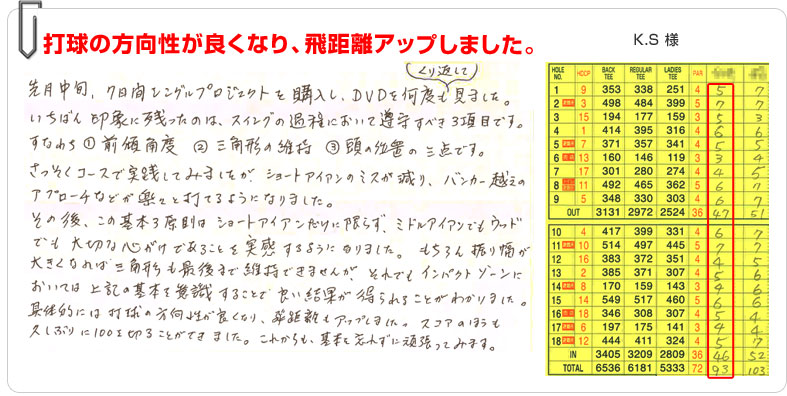 打球の方向性が良くなり、飛距離アップしました。
K.S 様
くり返して
先月中旬、7日間シングルプロジェクトを購入し、DVDを何度も見ました。
いちばん印象に残ったのは、スイングの過程において遵守すべき3項目です。
すなわち ① 前傾角度 ② 三角形の維持 ③ 頭の位置の三点です。
さっそくコースで実践してみましたが、ショートアイアンのミスが減り、バンカー越えの
アプローチなどが楽々と打てるようになりました。
その後、この基本3原則はショートアイアンだけに限らず、ミドルアイアンでもウッド
でも大切な心がけであることを実感するようになりました。もちろん振り幅が
大きくなれば三角形も最後まで維持できませんが、それでもインパクトゾーンに
おいては上記の基本を意識することで良い結果が得られることがわかりました。
具体的には打球の方向性が良くなり、飛距離もアップしました。スコアのほうも
久しぶりに100を切ることができました。これからも、基本を忘れずに頑張ってみます。
HOLE NO. HDCP BACK TEE REGULAR TEE LADIES TEE PAR
1 9 353 338 251 4 5 7
2 3 498 484 399 5 7 7
3 15 194 177 159 3 5 3
4 1 414 395 316 4 6 6
5 7 371 357 341 4 5 5
6 13 160 146 119 3 3 4
7 17 301 280 274 4 4 5
8 11 492 465 362 5 6 7
9 5 348 330 303 4 6 7
OUT 3131 2972 2524 36 47 51
10 4 417 399 331 4 6 7
11 10 514 497 445 5 7 7
12 16 383 372 351 4 4 5
13 2 385 371 307 4 5 6
14 8 170 159 143 3 4 6
15 14 549 517 460 5 6 6
16 18 346 308 307 4 5 4
17 6 197 175 141 3 4 4
18 12 444 411 324 4 5 7
IN 3405 3209 2809 36 46 52
TOTAL 6536 6181 5333 72 93 103